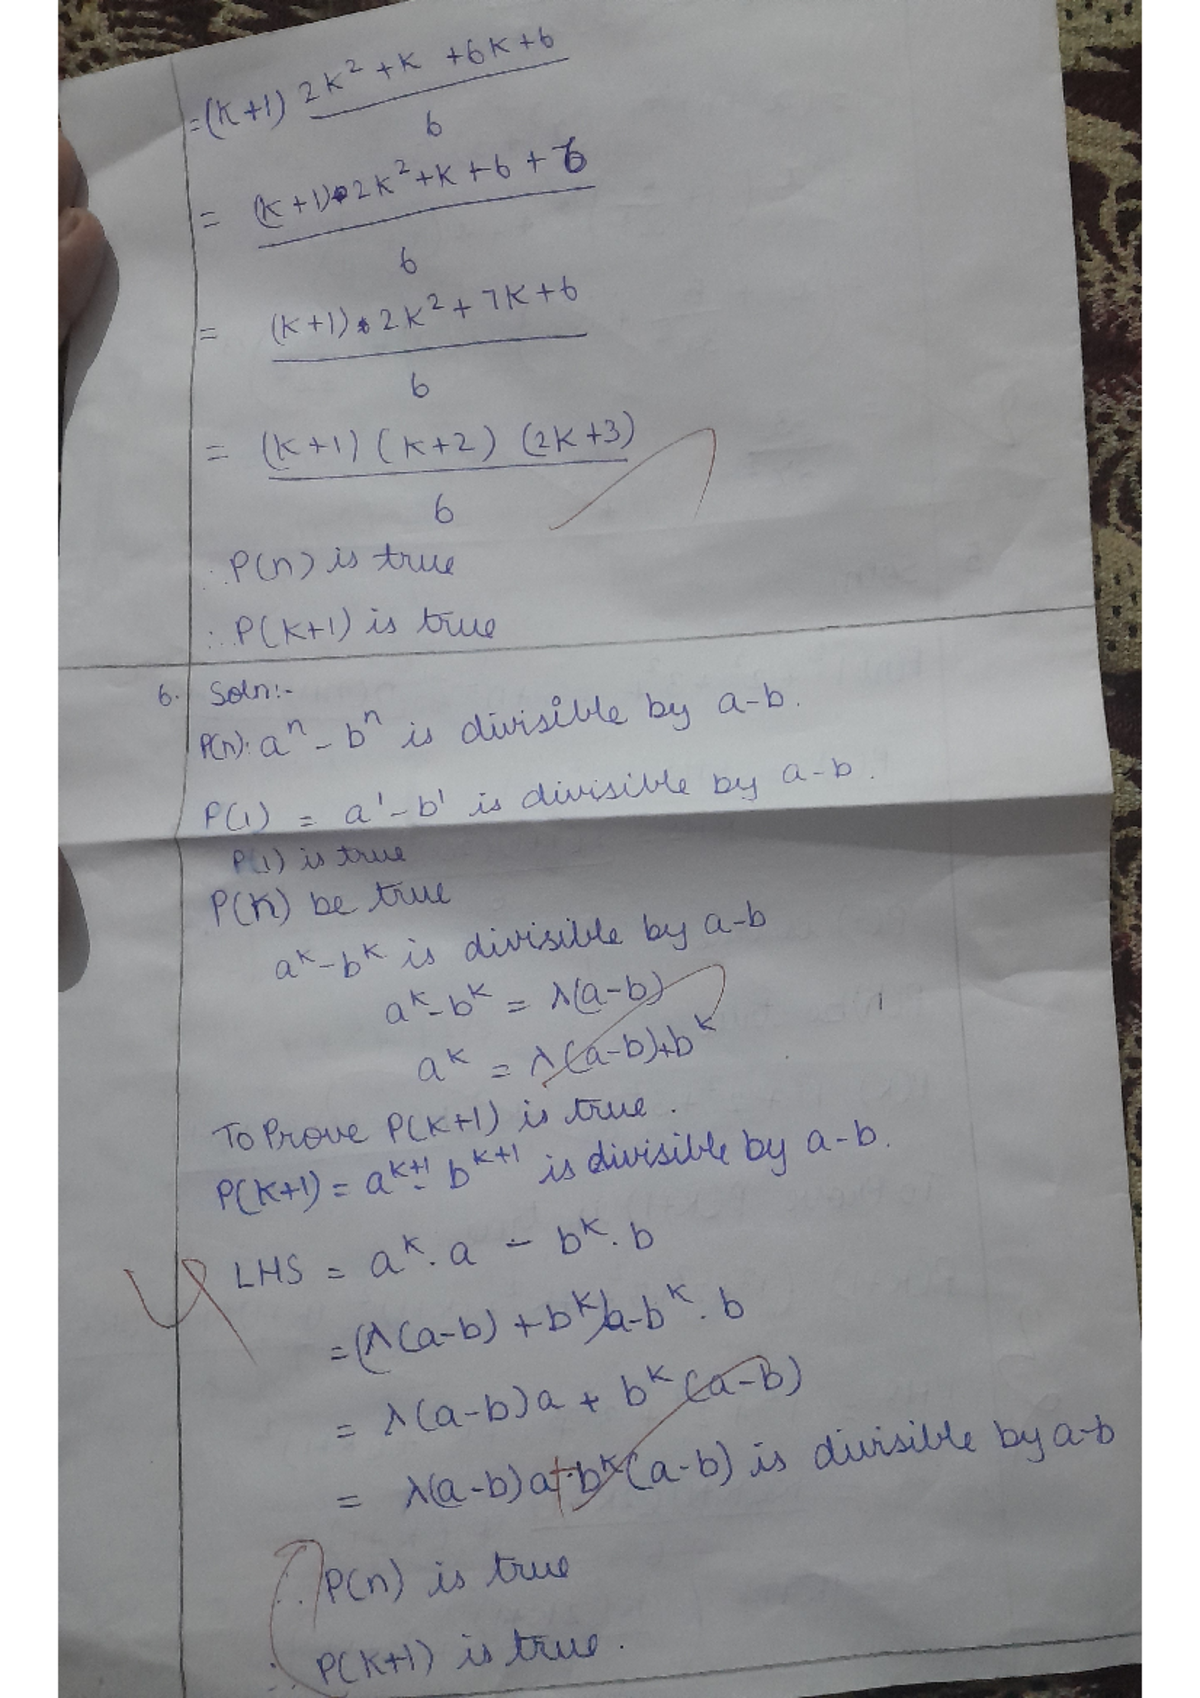 =(K+1) 2K² + K + 6K + 6
6
= (K+1) 2K² + K + 6 + 6
6
= (K+1) 2K² + 7K + 6
6
= (K+1) (K+2) (2K+3)
6
∴ P(n) is true
∴ P(K+1) is true
6. Soln:-
P(n): aⁿ - bⁿ is divisible by a-b.
P(1) = a¹ - b¹ is divisible by a-b.
P(1) is true
P(K) be true
aᴷ - bᴷ is divisible by a-b
aᴷ - bᴷ = λ(a-b)
aᴷ = λ(a-b)+bᴷ
To Prove P(K+1) is true.
P(K+1) = aᴷ⁺¹ - bᴷ⁺¹ is divisible by a-b.
LHS = aᴷ. a - bᴷ. b
= (λ(a-b) + bᴷ)a - bᴷ. b
= λ(a-b)a + bᴷ (a-b)
= λ(a-b)a + bᴷ(a-b) is divisible by a-b
∴ P(n) is true
∴ P(K+1) is true.